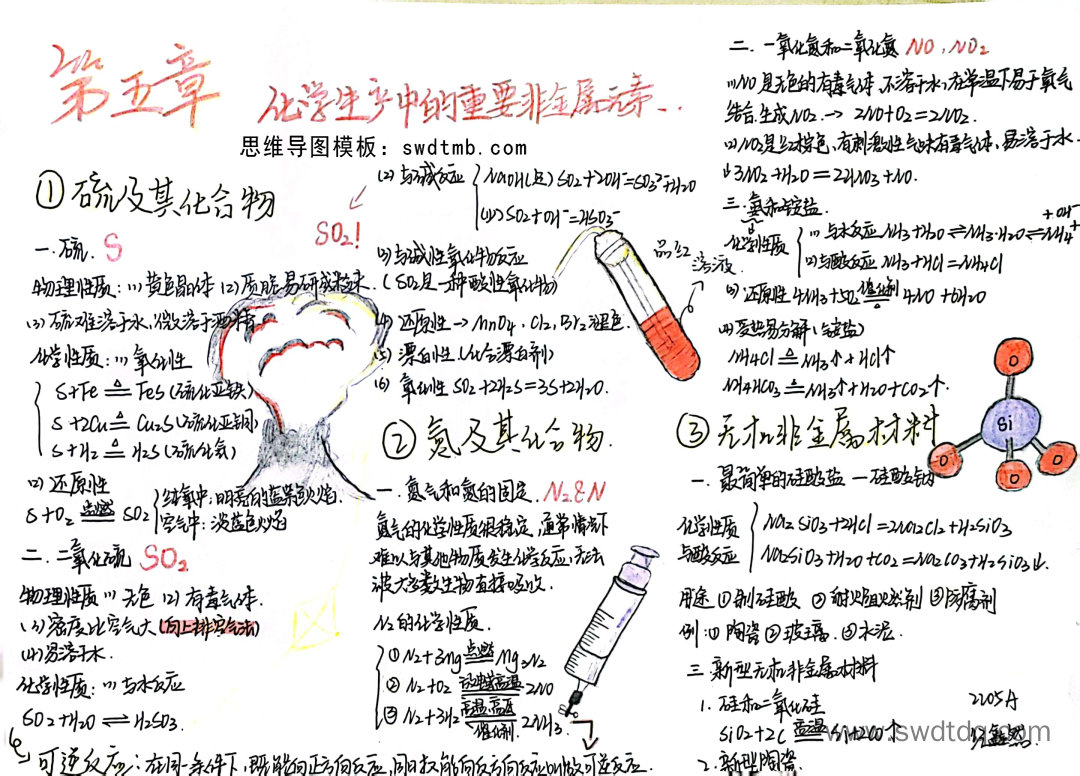 第五章
化学生产中的重要非金属元素..
思维导图模板：swdtmb.com
①硫及其化合物
SO₂!
一.硫. S
物理性质：(1)黄色晶体 (2)质脆易研成粉末.
(3)硫难溶于水,微溶于酒精
化学性质：(1)氧化性
S+Fe ≜ FeS(硫化亚铁)
S+2Cu ≜ Cu₂S(硫化亚铜)
S+H₂ ≜ H₂S(硫化氢)
(2)还原性
S+O₂ 点燃 SO₂
纯氧中:明亮的蓝紫色火焰.
空气中:淡蓝色火焰
二.二氧化硫 SO₂
物理性质(1)无色 (2)有毒气体.
(3)密度比空气大(向上排空气法)
(4)易溶于水.
化学性质：(1)与水反应
SO₂+H₂O ⇌ H₂SO₃.
可逆反应：在同一条件下,既能向正方向反应,同时又能向反方向反应叫做可逆反应.
(2)与碱反应
NaOH(足) SO₂+2OH⁻=SO₃²⁻+H₂O
SO₂+OH⁻=HSO₃⁻
(3)与碱性氧化物反应
(SO₂是一种酸性氧化物)
(4)还原性→MnO₄⁻,Cl₂,Br₂褪色.
(5)漂白性(化合漂白剂)
(6)氧化性 SO₂+2H₂S=3S+2H₂O.
品红
溶液
②氮及其化合物.
一.氮气和氮的固定. N₂&N
氮气的化学性质很稳定,通常情况下
难以与其他物质发生化学反应,无法
被大多数生物直接吸收.
N₂的化学性质.
①N₂+3Mg 点燃 Mg₃N₂
②N₂+O₂ 放电或高温 2NO
③N₂+3H₂ 高温、高压 催化剂 2NH₃.
二.一氧化氮和二氧化氮 NO,NO₂
(1)NO是无色的有毒气体,不溶于水,在常温下易于氧气
结合.生成NO₂.→2NO+O₂=2NO₂.
(2)NO₂是红棕色,有刺激性气味有毒气体,易溶于水.
3NO₂+H₂O=2HNO₃+NO.
三.氨和铵盐.
化学性质
(1)与水反应NH₃+H₂O⇌NH₃·H₂O⇌NH₄⁺+OH⁻
(2)与酸反应NH₃+HCl=NH₄Cl
(3)还原性 4NH₃+5O₂ 催化剂 △ 4NO+6H₂O
(4)受热易分解(铵盐)
NH₄Cl ≜ NH₃↑+HCl↑
NH₄HCO₃ ≜ NH₃↑+H₂O+CO₂↑.
③无机非金属材料
Si
O
O
O
O
一.最简单的硅酸盐—硅酸钠
化学性质
与酸反应
Na₂SiO₃+2HCl=2NaCl+H₂SiO₃
Na₂SiO₃+H₂O+CO₂=Na₂CO₃+H₂SiO₃↓.
用途①制硅酸 ②耐火阻燃剂 ③防腐剂
例:①陶瓷②玻璃.③水泥.
三.新型无机非金属材料
1.硅和二氧化硅
SiO₂+2C 高温 Si+2CO↑
2.新型陶瓷
2205A
www.swdtdq.com